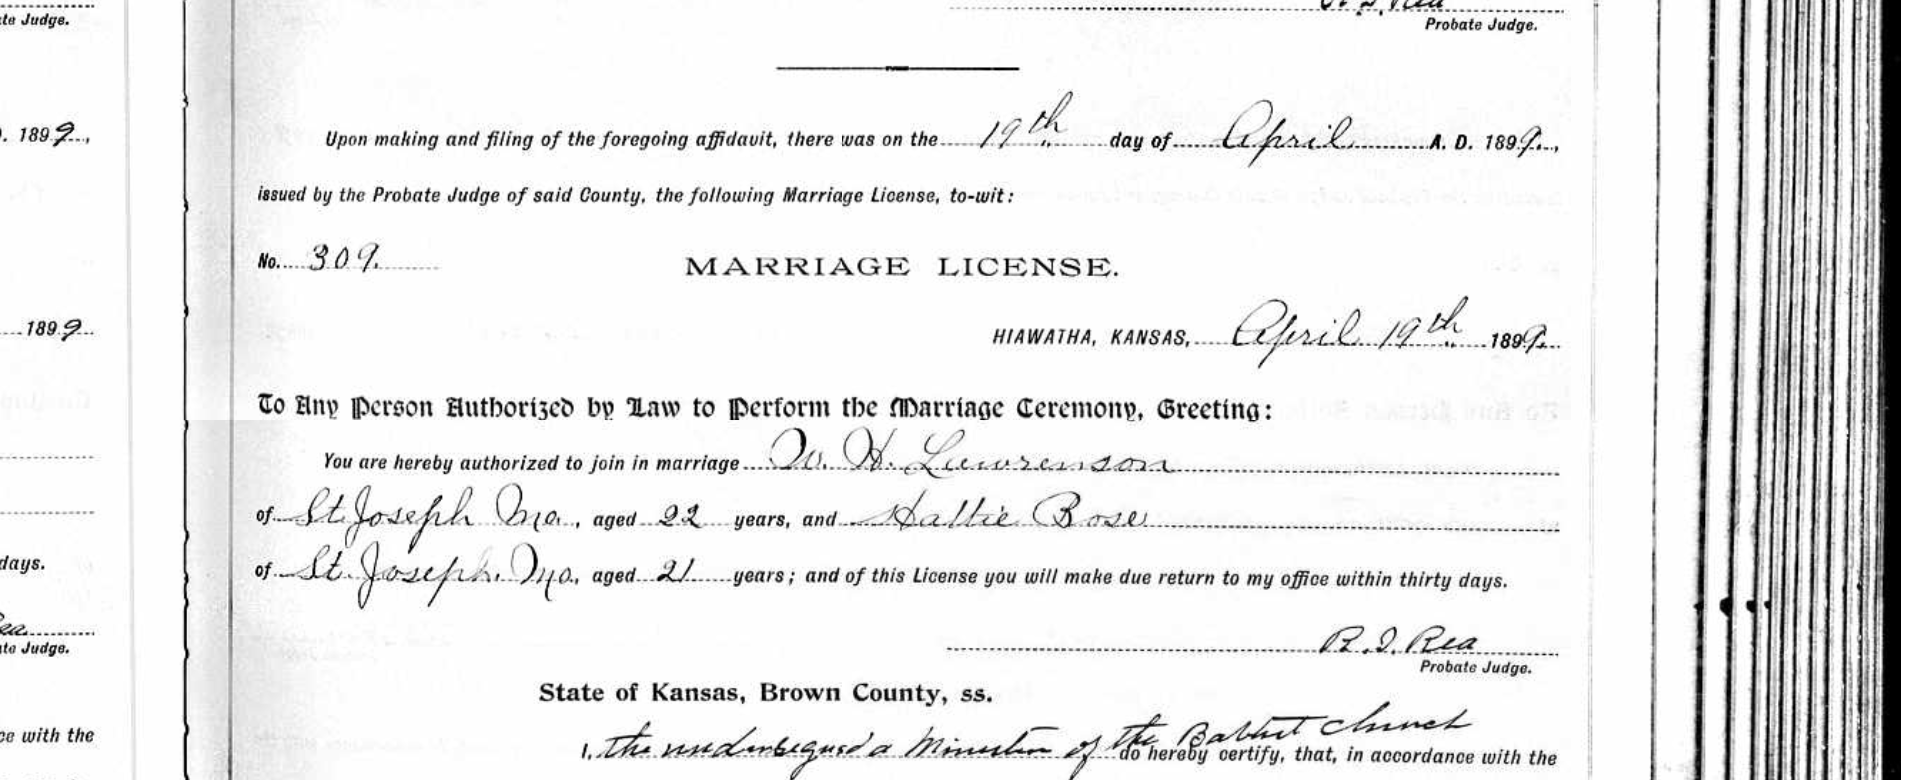 te Judge.
Rea
Probate Judge.
Upon making and filing of the foregoing affidavit, there was on the 19th day of April A. D. 1899,
. 1899,
issued by the Probate Judge of said County, the following Marriage License, to-wit:
No. 309.
MARRIAGE LICENSE.
1899
HIAWATHA, KANSAS, April 19th 1899.
To Any Person Authorized by Law to Perform the Marriage Ceremony, Greeting:
You are hereby authorized to join in marriage W. H. Lawrenson
of St. Joseph Mo., aged 22 years, and Hattie Rose
days.
of St. Joseph, Mo., aged 21 years; and of this License you will make due return to my office within thirty days.
ea
te Judge.
R. I. Rea
Probate Judge.
State of Kansas, Brown County, ss.
ce with the
I, the undersigned a Minister of the Babtist Church do hereby certify, that, in accordance with the